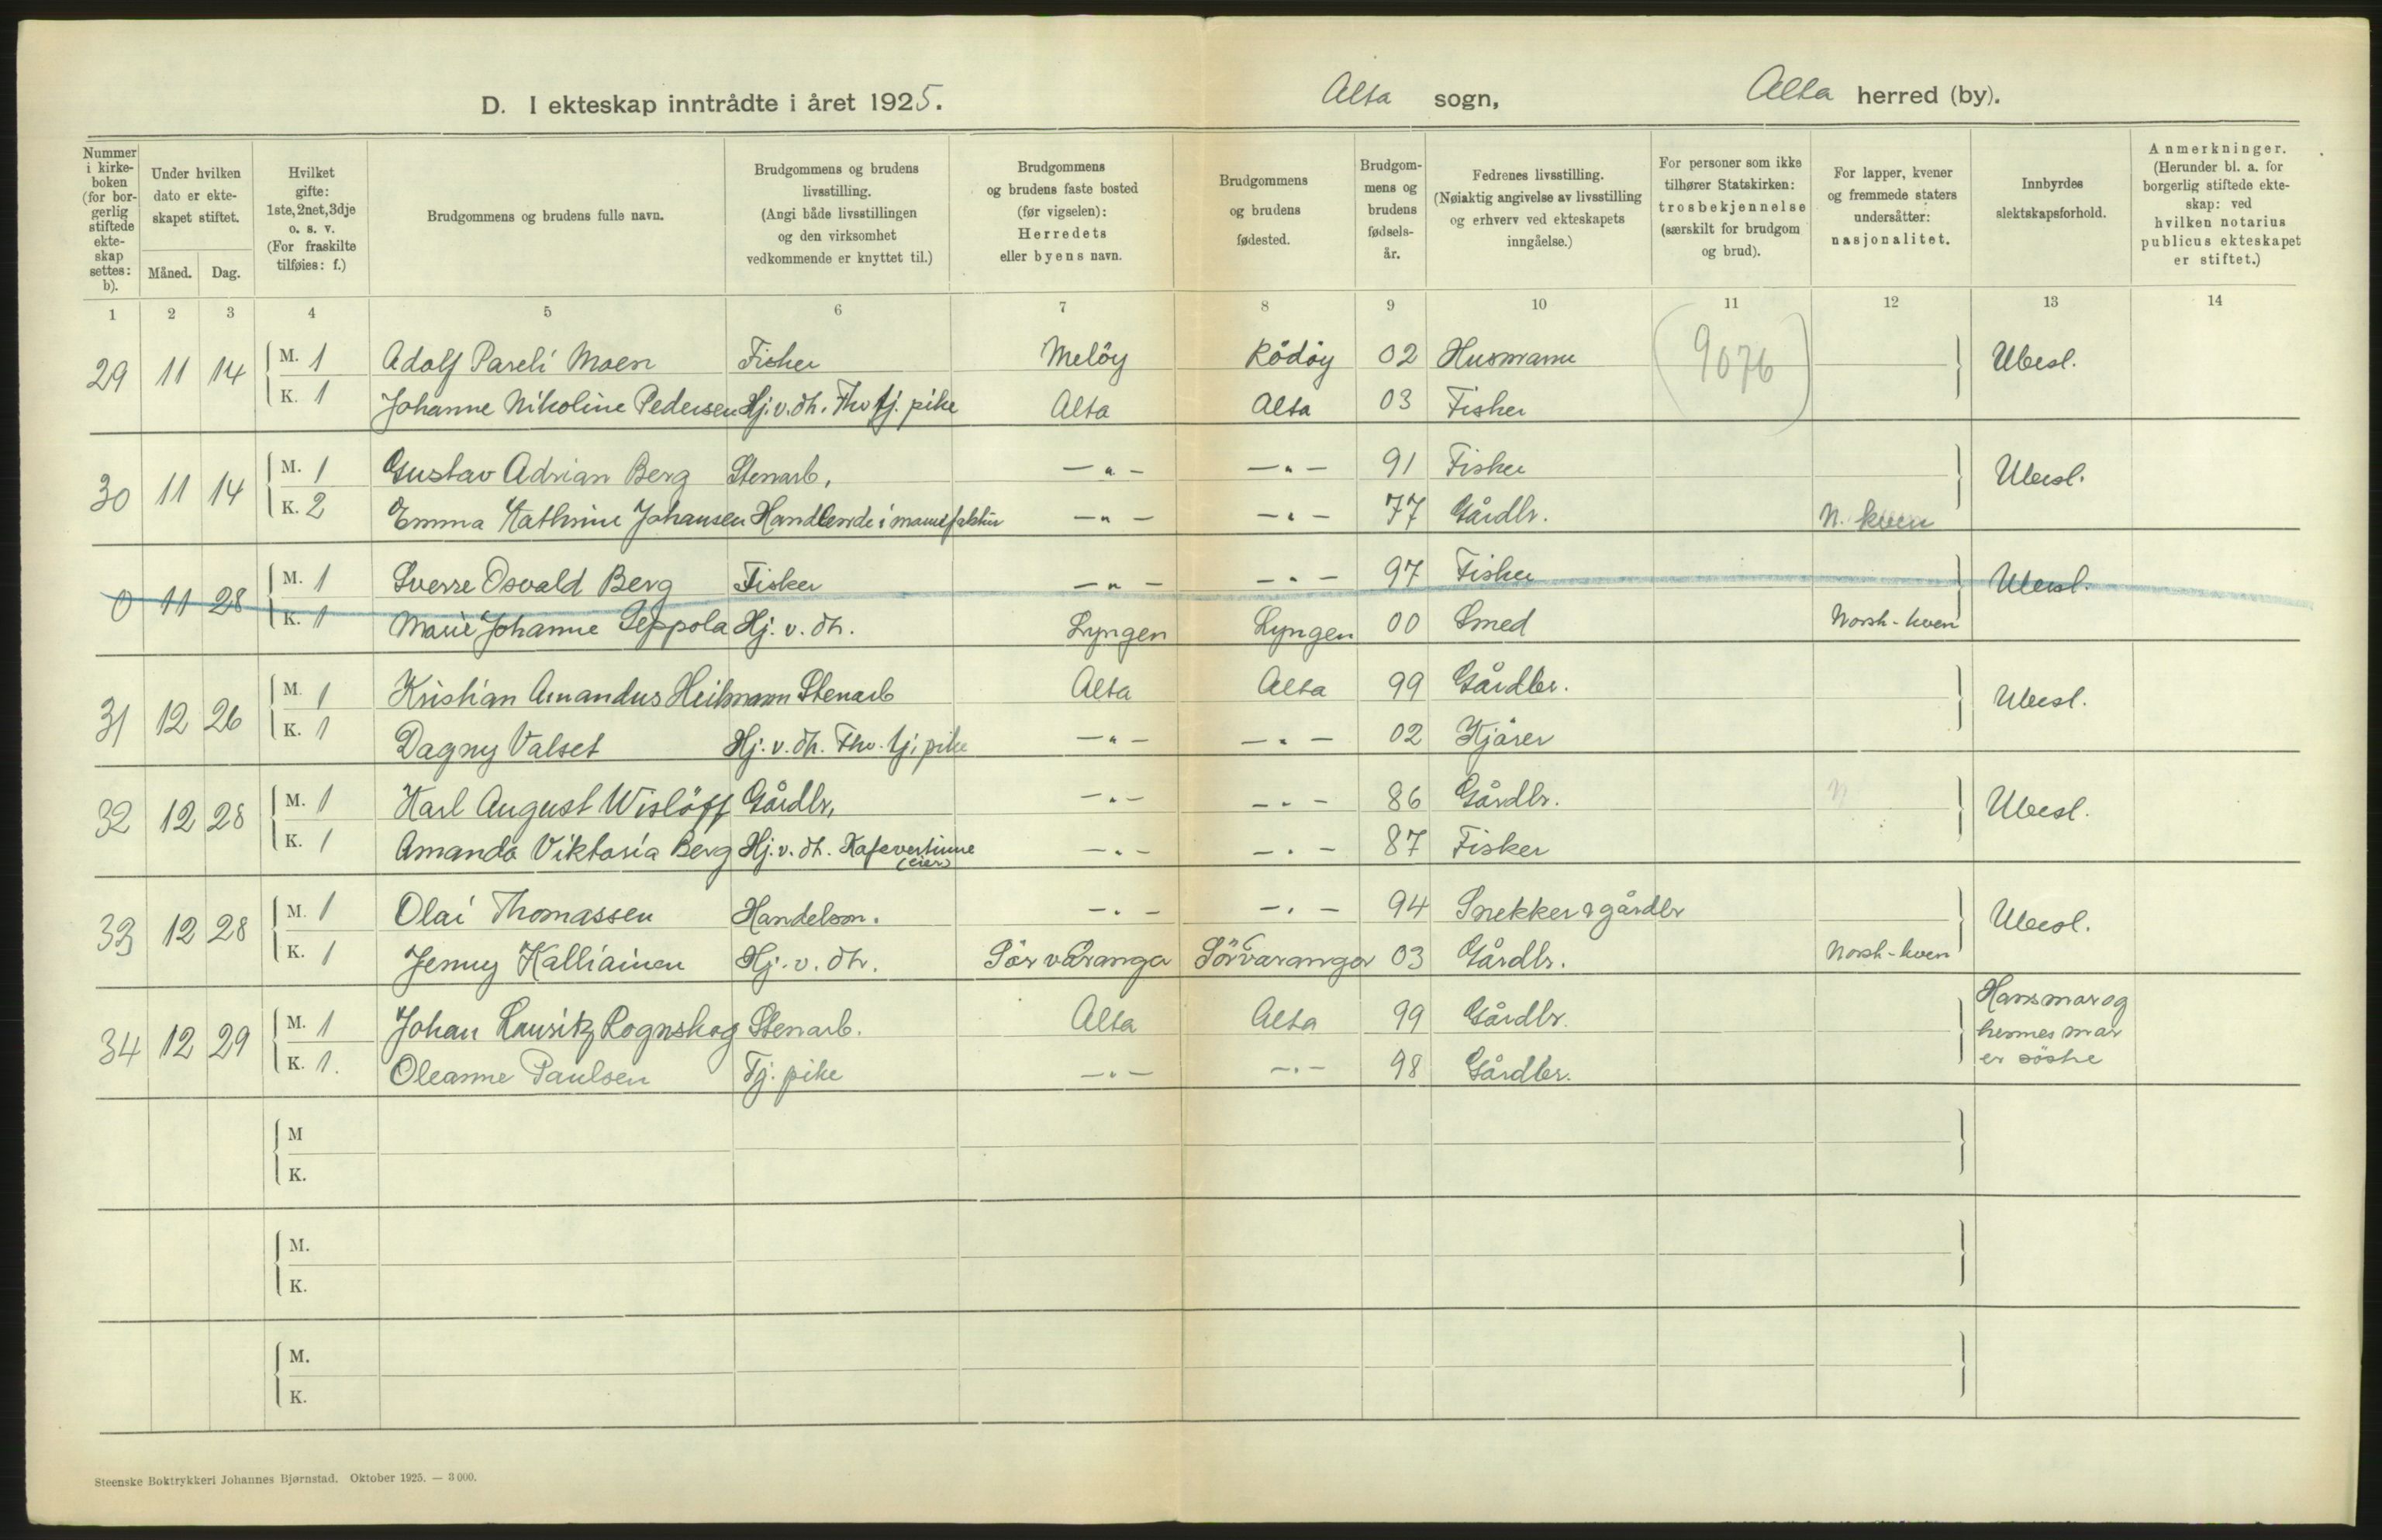 D. I ekteskap inntrådte i året 1925. Alta sogn, Alta herred (by).
Nummer i kirkeboken (for borgerlig stiftede ekteskap settes: b).
Under hvilken dato er ekteskapet stiftet.
Måned. Dag.
Hvilket gifte: 1ste, 2net, 3dje o. s. v. (For fraskilte tilføies: f.)
Brudgommens og brudens fulle navn.
Brudgommens og brudens livsstilling. (Angi både livsstillingen og den virksomhet vedkommende er knyttet til.)
Brudgommens og brudens faste bosted (før vigselen): Herredets eller byens navn.
Brudgommens og brudens fødested.
Brudgommens og brudens fødselsår.
Fedrenes livsstilling. (Nøiaktig angivelse av livsstilling og erhverv ved ekteskapets inngåelse.)
For personer som ikke tilhører Statskirken: trosbekjennelse (særskilt for brudgom og brud).
For lapper, kvener og fremmede staters undersåtter: nasjonalitet.
Innbyrdes slektskapsforhold.
Anmerkninger. (Herunder bl. a. for borgerlig stiftede ekteskap: ved hvilken notarius publicus ekteskapet er stiftet.)
1 2 3 4 5 6 7 8 9 10 11 12 13 14
29 11 14 M. 1 Adolf Pareli Moen Fisker Melöy Rödöy 02 Husmann (9076) Ubesl.
K. 1 Johanne Nikoline Pedersen Hj. v. dh. Fhv tj. pike Alta Alta 03 Fisker
30 11 14 M. 1 Gustav Adrian Berg Stenarb. —"— —"— 91 Fisker Ubesl.
K. 2 Emma Kathrine Johansen Handlende i manufaktur —"— —"— 77 Gårdbr. N. kven
0 11 28 M. 1 Sverre Osvald Berg Fisker —"— —"— 97 Fisker Ubesl.
K. 1 Marie Johanne Seppola Hj. v. dh. Lyngen Lyngen 00 Smed Norsk-kven
31 12 26 M. 1 Kristian Amandus Heitmann Stenarb Alta Alta 99 Gårdbr. Ubesl.
K. 1 Dagny Valset Hj. v. dh. Fhv. tj. pike —"— —"— 02 Kjörer
32 12 28 M. 1 Karl August Wislöff Gårdbr. —"— —"— 86 Gårdbr. N Ubesl.
K. 1 Amanda Viktoria Berg Hj. v. dh. Kafevertinne (eier) —"— —"— 87 Fisker
33 12 28 M. 1 Olai Thomassen Handelsm. —"— —"— 94 Snekker & gårdbr Ubesl.
K. 1 Jenny Kalliainen Hj. v. dh. Sör varanger Sörvaranger 03 Gårdbr. Norsk-kven
34 12 29 M. 1 Johan Lauritz Rognskog Stenarb. Alta Alta 99 Gårdbr. Hans mor og
hennes mor
K. 1. Oleanne Paulsen Tj. pike —"— —"— 98 Gårdbr. er söstre
M
K.
M.
K.
M.
K.
Steenske Boktrykkeri Johannes Bjørnstad. Oktober 1925. — 3000.